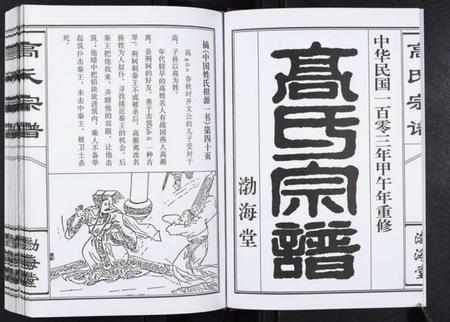 中华民国一百零三年甲午年重修
高氏宗譜
渤海堂
高氏宗譜
渤海堂
摘《中国姓氏根源一书》第四十页
高 gāo 春秋时齐文公的儿子受封于
高，子孙以高为姓。
年代较早的高姓名人有战国燕人高渐
离，是荆轲的好友，善于击筑 zhù 一种古
琴。荆轲刺秦王不成被杀后，高渐离改名
换姓为人奴仆，寻找接近秦王的机会。后
秦王把他找来，弄瞎他的双眼，让他击
筑；他暗中把铅块放进筑内，乘人不备举
起筑扑击秦王，未击中秦王，被卫士杀
死。
高氏宗譜
渤海堂